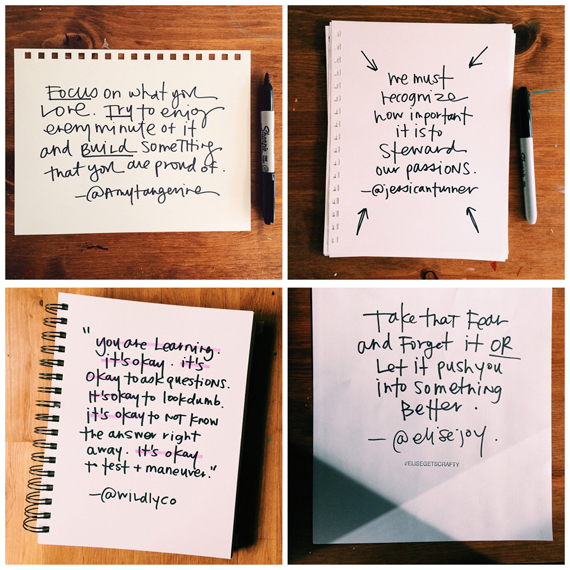 Focus on what you
Love. Try to enjoy
every minute of it
and Build something
that you are proud of.
—@Amytangerine
Sharpie
we must
recognize
how important
it is to
Steward
our passions.
—@jessicanturner
"you are Learning.
it's okay. it's
okay to ask questions.
it's okay to look dumb.
it's okay to not know
the answer right
away. It's okay
to test + maneuver."
—@wildlyco
Take that Fear
and Forget it OR
Let it push you
into something
Better.
—@elisejoy.
#ELISEGETSCRAFTY